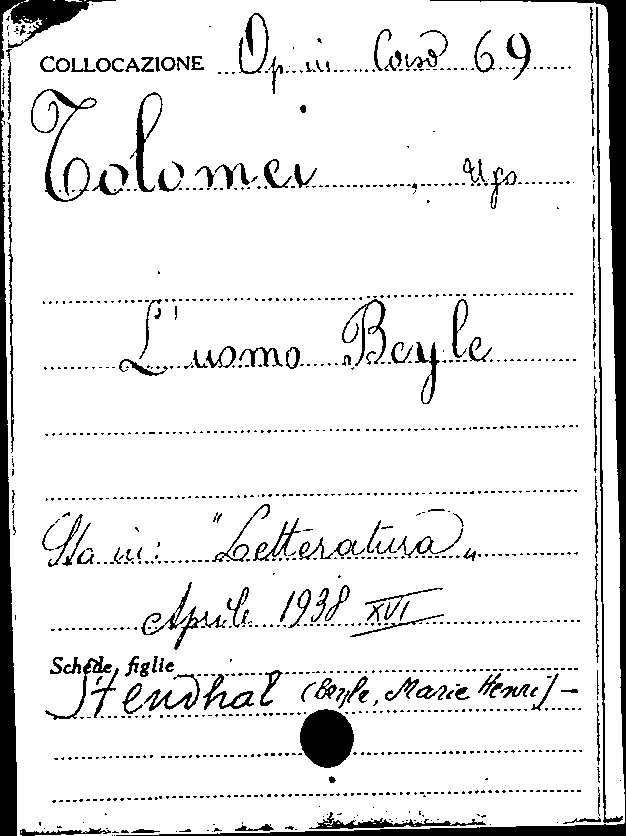 COLLOCAZIONE Op in Corso 69
Tolomei, Ugo
L'uomo Beyle
Sta in: "Letteratura„
Aprile 1938 XVI
Schede figlie
Stendhal (Beyle, Marie Henri) –